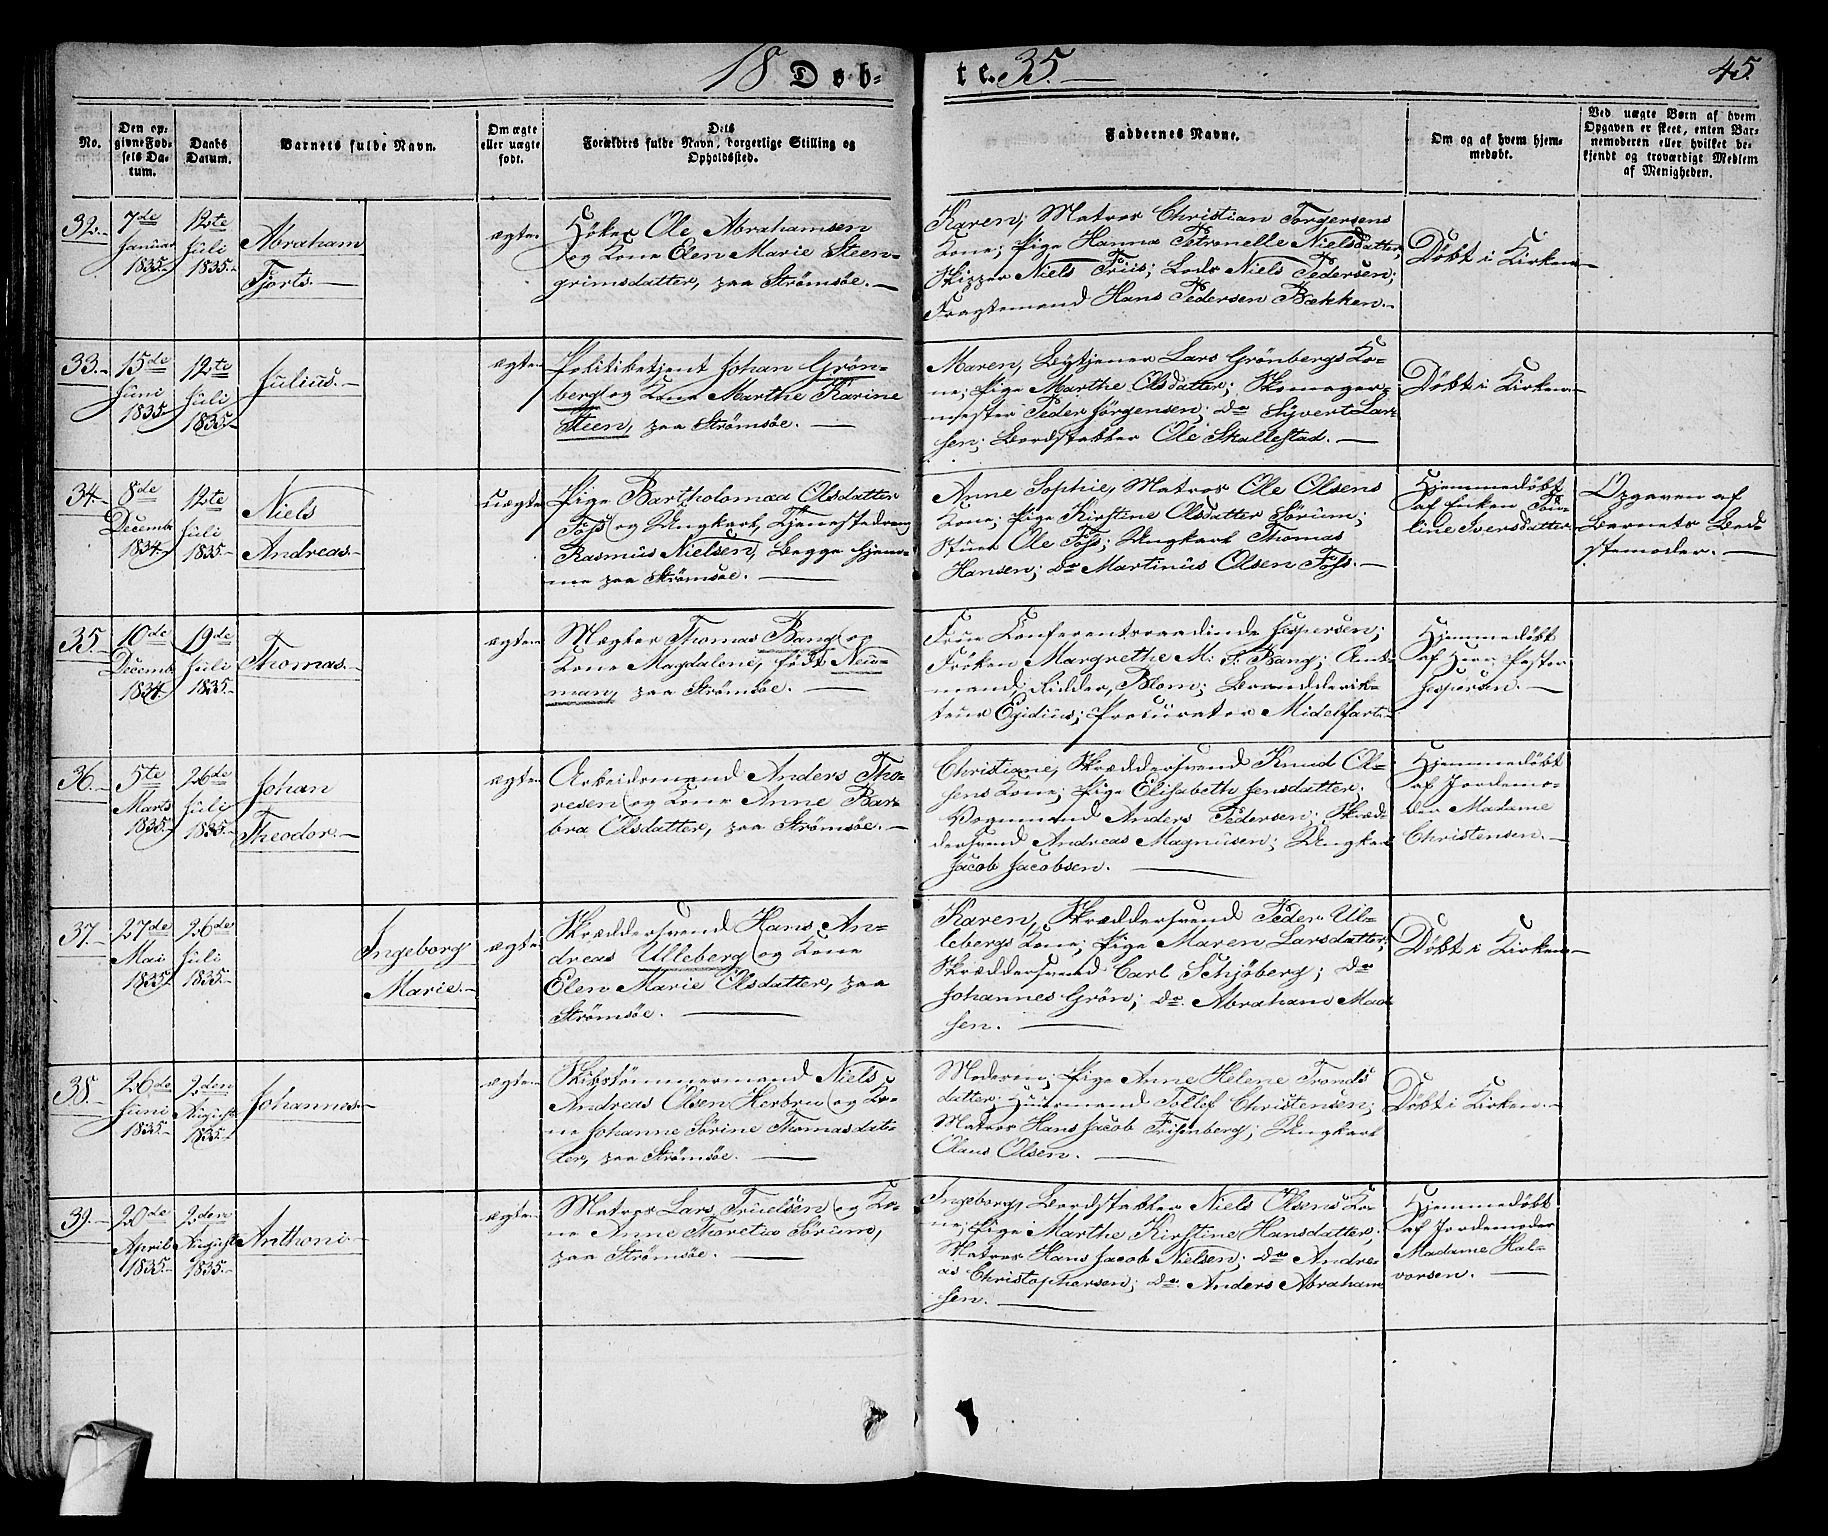 18 Døb- te. 35.
45.
No.
Den op-
givne Fød-
sels Da-
tum.
Daabs
Datum.
Barnets fulde Navn.
Om ægte
eller uægte
født.
Dets
Forældres fulde Navn, borgerlige Stilling og
Opholdssted.
Faddernes Navne.
Om og af hvem hjem-
medøbt.
Ved uægte Børn af hvem
Opgaven er skeet, enten Bar-
nemoderen eller hvilket be-
kjendt og troværdigt Medlem
af Menigheden.
32.
7de
Januar
1835.
12te
Juli
1835.
Abraham
Fjorts.
ægte
Høker Ole Abrahamsen
og Kone Elen Marie Steen-
grimsdatter, paa Strømsøe.
Karen, Matros Christian Torgersens
Kone; Pige Hanna Petronelle Nielsdatter;
Skipper Niels Friis; Lods Niels Pedersen;
Fragtemand Hans Pedersen Bækken.
Døbt i Kirken
33.
15de
Juni
1835
12te
Juli
1835.
Julius.
ægte
Politibetjent Johan Grøn-
berg og Kone Marthe Karine
Steen, paa Strømsøe.
Maren, Bytjener Lars Grønbergs Ko-
ne; Pige Marthe Olsdatter; Skomager-
mester Peder Jørgensen; do Syvert Lar-
sen; Bordstabler Ole Skallestad.
Døbt i Kirken
34.
8de
Decemb
1834
12te
Juli
1835
Niels
Andreas
uægte
Pige Bartholomæa Olsdatter
Foss og Ungkarl, Tjenestedreng
Rasmus Nielsen, Begge hjem-
me paa Strømsøe.
Anne Sophie, Matros Ole Olsens
Kone; Pige Kirstine Olsdatter Sørum;
Stuer Ole Foss; Ungkarl Thomas
Hansen; do Martinus Olsen Foss.
Hjemmedøbt
af Enken Pau-
line Iversdatter
Opgaven af
Barnets Bed-
stemoder.
35.
10de
Decemb
1834.
19de
Juli
1835
Thomas.
ægte
Mægler Thomas Bang og
Kone Magdalene, født Neu-
man, paa Strømsøe.
Frue Conferentsraadinde Jespersen;
Frøken Margrethe M. S. Bang; Amt-
mand, Ridder, Blom; Branddirek-
teur Egidius; Procurator Midelfart.
Hjemmedøbt
af Herr Pastor
Jespersen.
36.
5te
Marts
1835
26de
Juli
1835.
Johan
Theodor.
ægte
Arbeidsmand Anders Tho-
resen og Kone Anne Bar-
bra Olsdatter, paa Strømsøe.
Christiane, Skræddersvend Knud Ol-
sens Kone; Pige Elisabeth Jensdatter;
Vognmand Anders Pedersen; Skræd-
dersvend Andreas Magnusen; Ungkarl
Jacob Jacobsen.
Hjemmedøbt
af Jordemo-
der Madame
Christensen.
37.
27de
Mai
1835
26de
Juli
1835.
Ingeborg
Marie.
ægte
Skræddersvend Hans An-
dreas Ulleberg og Kone
Elen Marie Olsdatter, paa
Strømsøe.
Karen, Skræddersvend Peder Ul-
lebergs Kone; Pige Maren Larsdatter;
Skræddersvend Carl Schjøberg; do
Johannes Grøn; do. Abraham Mad-
sen.
Døbt i Kirken
38.
26de
Juni
1835
2den
August
1835.
Johannes
ægte
Skibstømmermand Niels
Andreas Olsen Herbru og Ko-
ne Johanne Sørine Thomasdat-
ter, paa Strømsøe.
Moderen; Pige Anne Helene Tronds-
datter; Huusmand Tollef Christensen;
Matros Hans Jacob Frisenberg; Ungkarl
Claus Olsen.
Døbt i Kirken.
39.
20de
April
1835.
2den
August
1835.
Anthoni.
ægte
Matros Lars Truelsen og Ko-
ne Anne Thoretia Sørum,
paa Strømsøe.
Ingeborg, Bordstabler Niels Olsens Ko-
ne; Pige Marthe Kirstine Hansdatter;
Matros Hans Jacob Nielsen; do Andre-
as Christophersen; do. Anders Abraham-
sen.
Hjemmedøbt
af Jordemoder
Madame Hal-
vorsen.